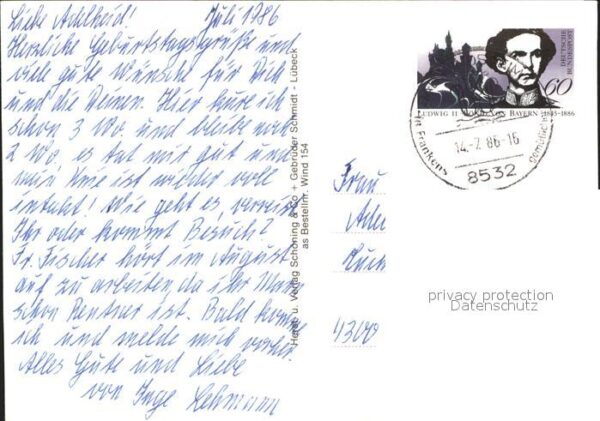 Liebe Adelheid! Juli 1986
Herzliche Geburtstagsgrüße und
viele gute Wünsche für Dich
und die Deinen. Hier kure ich
schon 3 Wo. und bleibe noch
2 Wo. es tat mir gut und
mein Knie ist wieder voll
intakt! Wie geht es, verreist
Ihr oder kommt Besuch?
Fr. Fischer hört im August
auf zu arbeiten da ihr Mann
schon Rentner ist. Bald komm
ich und melde mich vorher.
Alles Gute und Liebe
von Inge Lehmann
Herst. u. Verlag Schöning & Co + Gebrüder Schmidt - Lübeck
as Bestellnr. Wind 154
DEUTSCHE
BUNDESPOST
60
LUDWIG II KÖNIG VON BAYERN 1845-1886
in Frankens gemütlicher
14.-7.86-16
8532
Frau
Adel
4300
privacy protection
Datenschutz